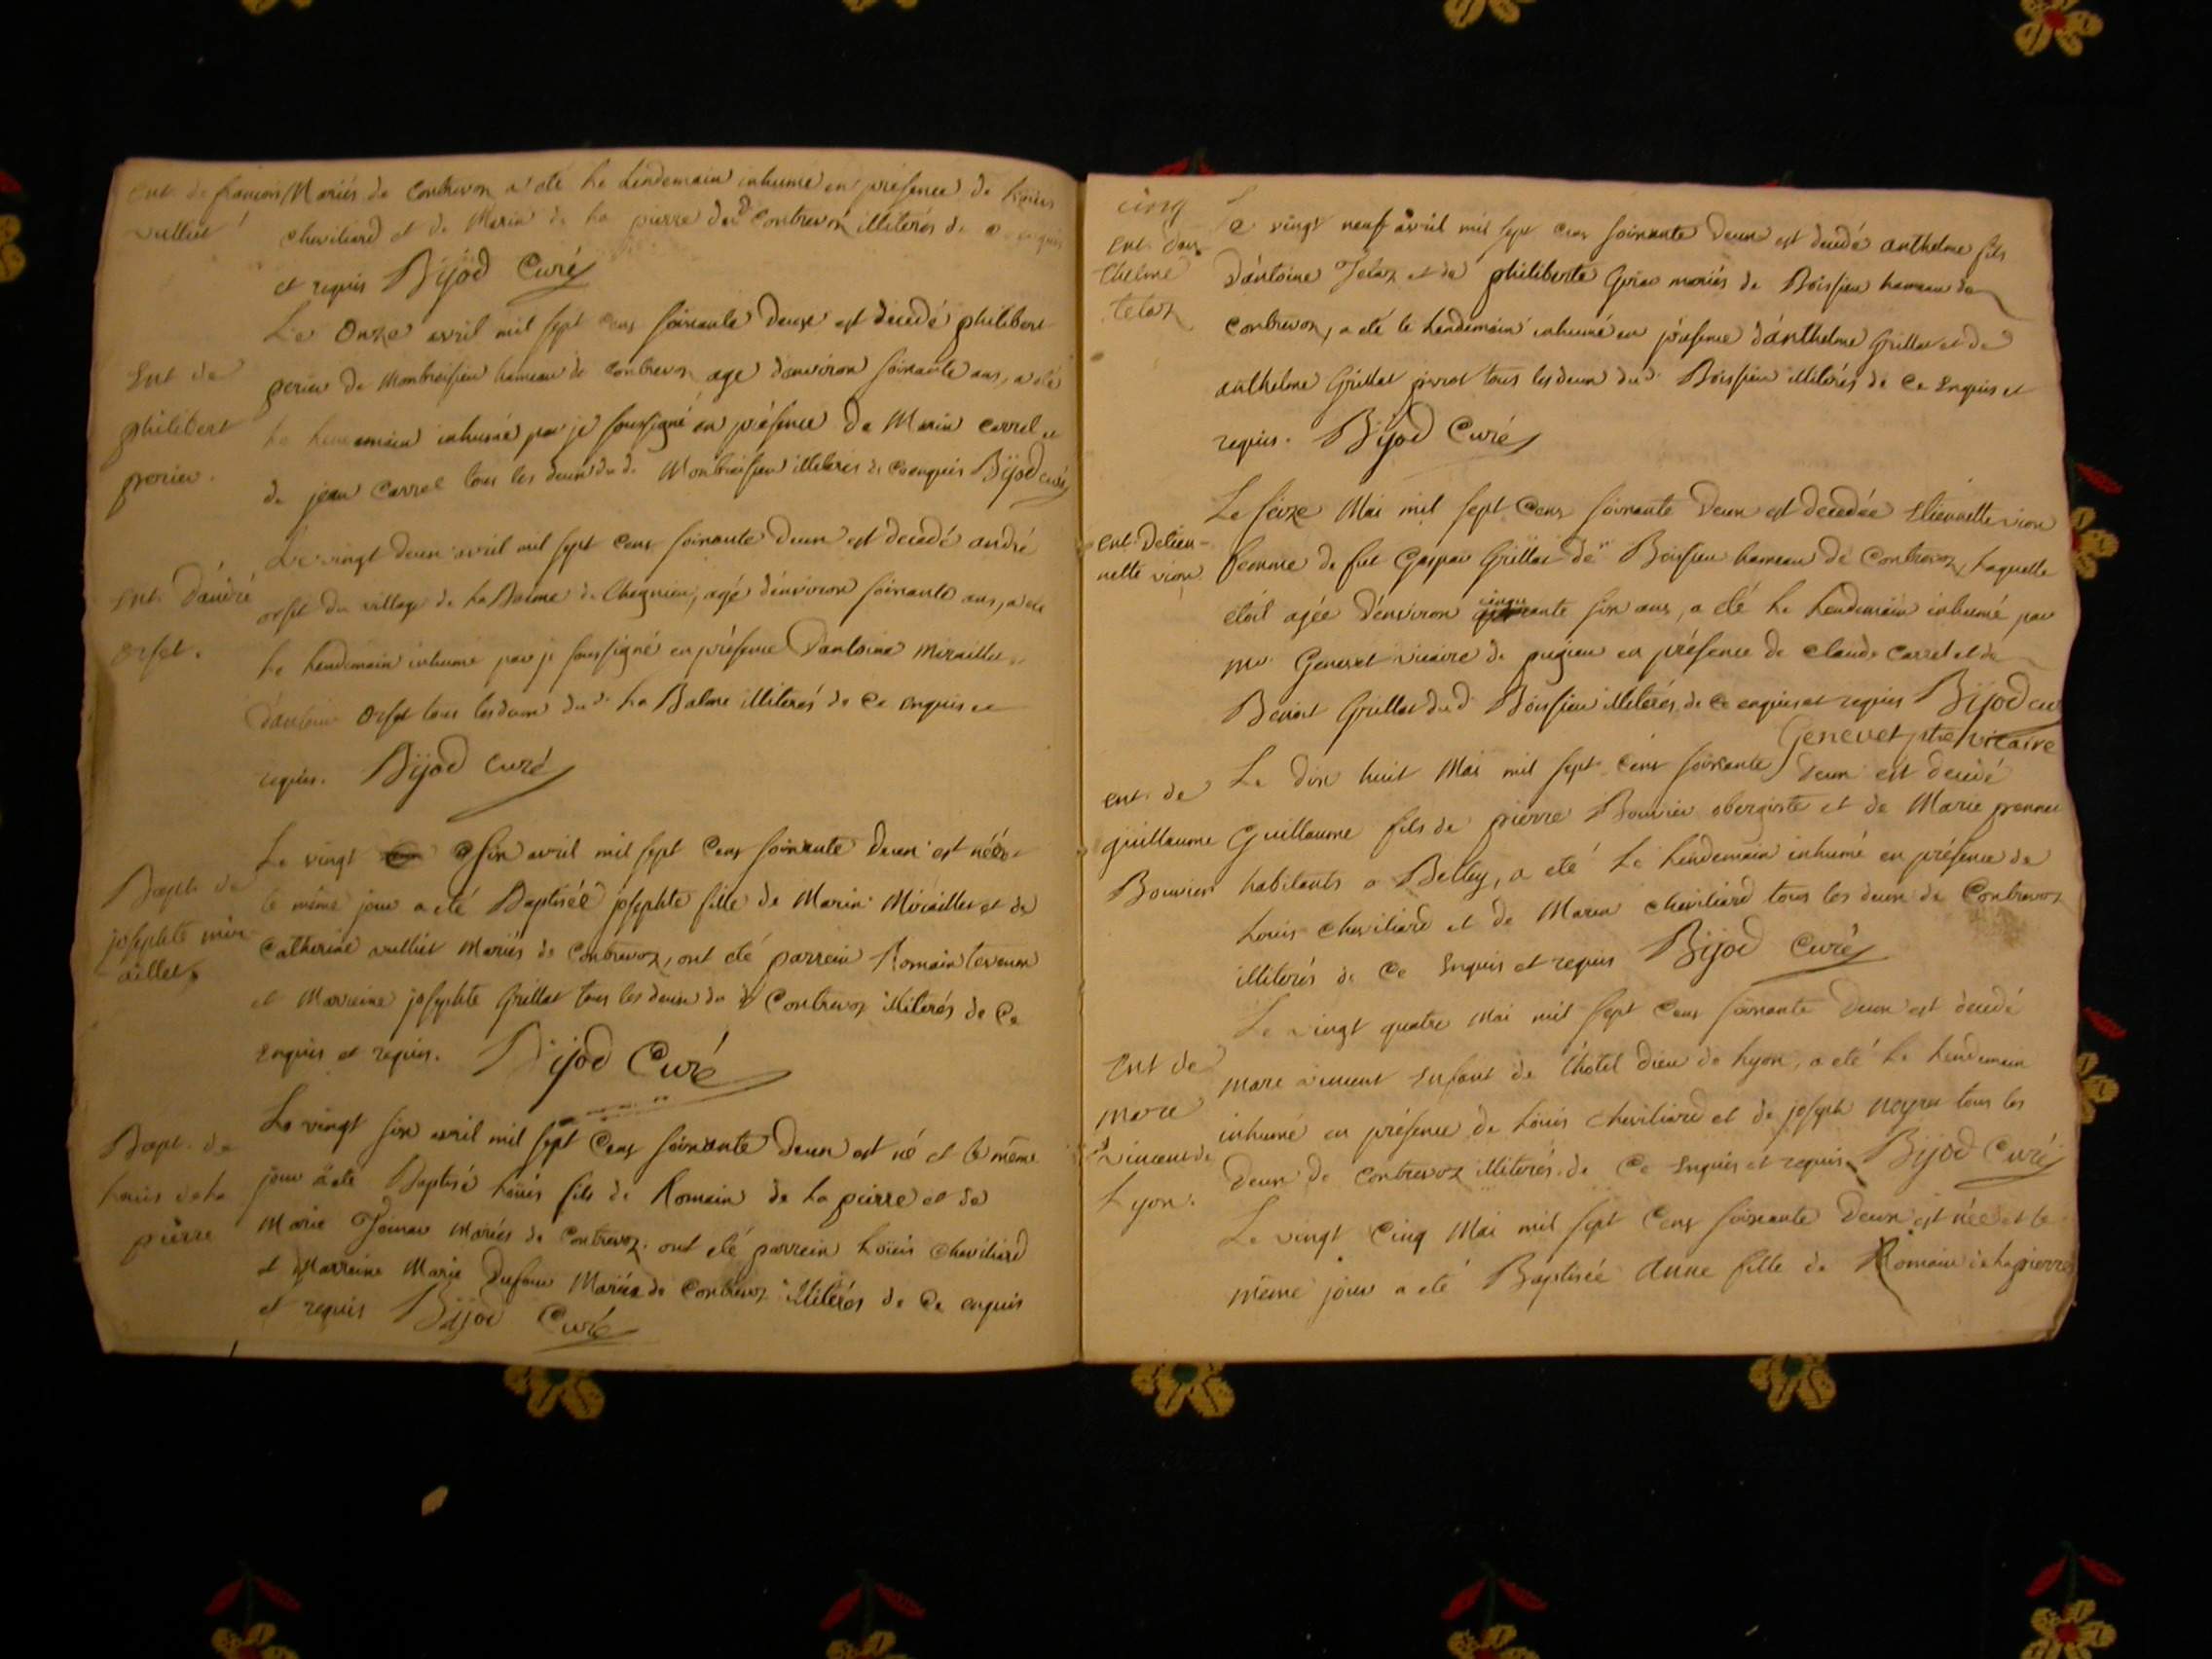 ent. de francois
vulliet
Mariés de Contrevoz a été le lendemain inhumé en présence de Loüis
chevilliard et de Marin de la pierre dud Contrevoz illiterés de ce enquis
et requis Bijod Curé
Ent de
philibert
perier.
Le Onze avril mil sept cens soixante deux est décédé philibert
perier de Montbreisieu hameau de Contrevoz agé d'environ soixante ans, a été
le lendemain inhumé par je soussigné en présence de Marin Carrel et
de jean Carrel tous les deux dud. Montbreisieu illiterés de ce enquis Bijod curé
Ent. D'andré
orset.
Le vingt deux avril mil sept cens soixante deux est décédé andré
orset du village de La Balme de Cheignieu, agé d'environ soixante ans, a été
le lendemain inhumé par je soussigné en présence D'antoine Miraillet
d'antoine Orset tous les deux dud. La Balme illiterés de Ce enquis et
requis. Bijod Curé
Bapt. de
josephte mir
aillet
Le vingt six avril mil sept cens soixante deux est née et
le même jour a été Baptisée josephte fille de Marin Miraillet et de
Catherine vulliet Mariés de Contrevoz, ont été parrein Romain tevenen
et Marreine josephte Grillat tous les deux du d Contrevoz illiterés de Ce
Enquis et requis. Bijod Curé
Bapt. de
Loüis de la
pierre
Le vingt six avril mil sept Cens soixante deux est né et le même
jour a été Baptisé Loüis fils de Romain de La pierre et de
Marie Joinau Mariés de Contrevoz. ont été parrein Loüis Chevilliard
et Marreine Marie Dufour Mariés de Contrevoz illiterés de Ce enquis
et requis Bijod Curé
cinq
Ent. d'an
thelme
tetaz
Le vingt neuf avril mil sept cens soixante deux est décédé anthelme fils
D'antoine Tetaz et de philiberte Goirau mariés de Boissieu hameau de
Contrevoz, a été le lendemain inhumé en présence d'anthelme Grillat et de
anthelme Grillat pivrot tous les deux dud. Boissieu illiterés de Ce Enquis et
requis. Bijod Curé
ent. D'etien-
nette vion
Le seize Mai mil sept Cens soixante Deux est décedée Etiennette vion
femme de feu Gaspar Grillat de Boissieu hameau de Contrevoz, Laquelle
étoit agée d'environ cinquante six ans, a été Le Lendemain inhumé par
mr Genevet vicaire de pugieu en présence de Claude Carrel et de
Benoit Grillat dud. Boissieu illiterés de Ce enquis et requis Bijod cu
Genevet ptre vicaire
ent. de
guillaume
Bouvier
Le dix huit Mai mil sept cens soixante deux est décédé
Guillaume fils de pierre Bouvier obergiste et de Marie prennet
habitants a Belley, a été Le Lendemain inhumé en présence de
Loüis Chevilliard et de Marin Chevilliard tous les deux de Contrevoz
illiterés de Ce Enquis et requis Bijod Curé
Ent de
marc
vincent de
Lyon.
Le vingt quatre Mai mil sept Cens soixante Deux est décédé
marc vincent Enfant de L'hôtel Dieu de Lyon, a été Le Lendemain
inhumé en présence de Loüis Chevilliard et de joseph neyret tous les
Deux de Contrevoz illiterés de Ce Enquis et requis Bijod Curé
Le vingt Cinq Mai mil sept Cens soixante Deux est née et le
même jour a été Baptisée Anne fille de Romain de La pierre